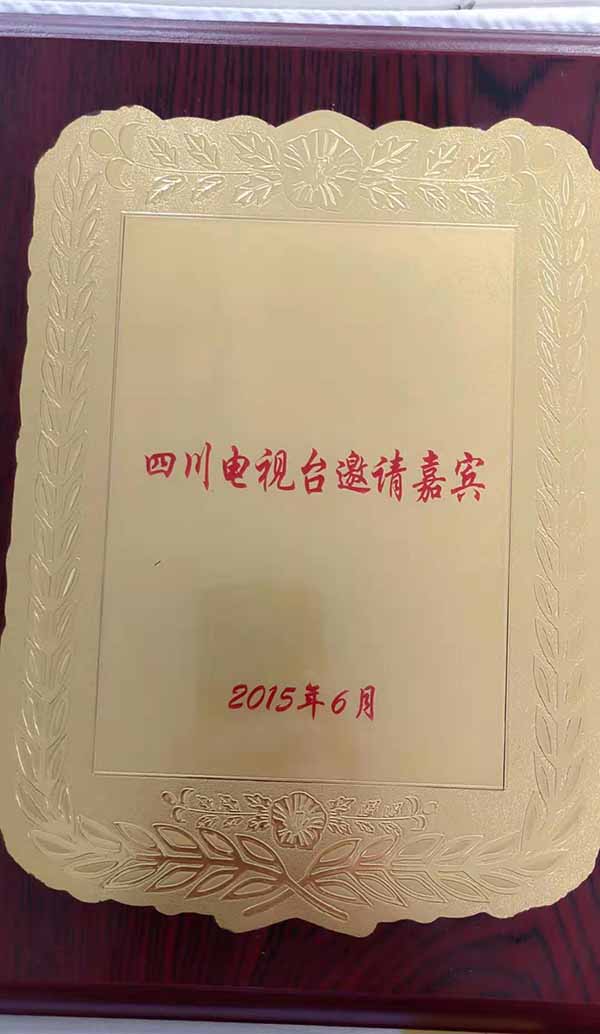 四川电视台邀请嘉宾
2015年6月